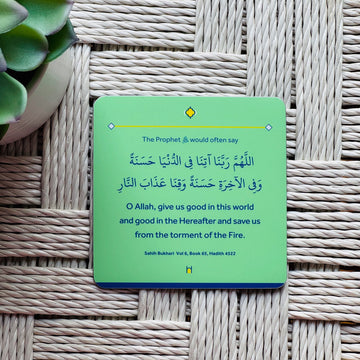 The Prophet ﷺ would often say
اللَّهُمَّ رَبَّنَا آتِنَا فِي الدُّنْيَا حَسَنَةً
وَفِي الآخِرَةِ حَسَنَةً وَقِنَا عَذَابَ النَّارِ
O Allah, give us good in this world
and good in the Hereafter and save us
from the torment of the Fire.
Sahih Bukhari Vol 6, Book 65, Hadith 4522